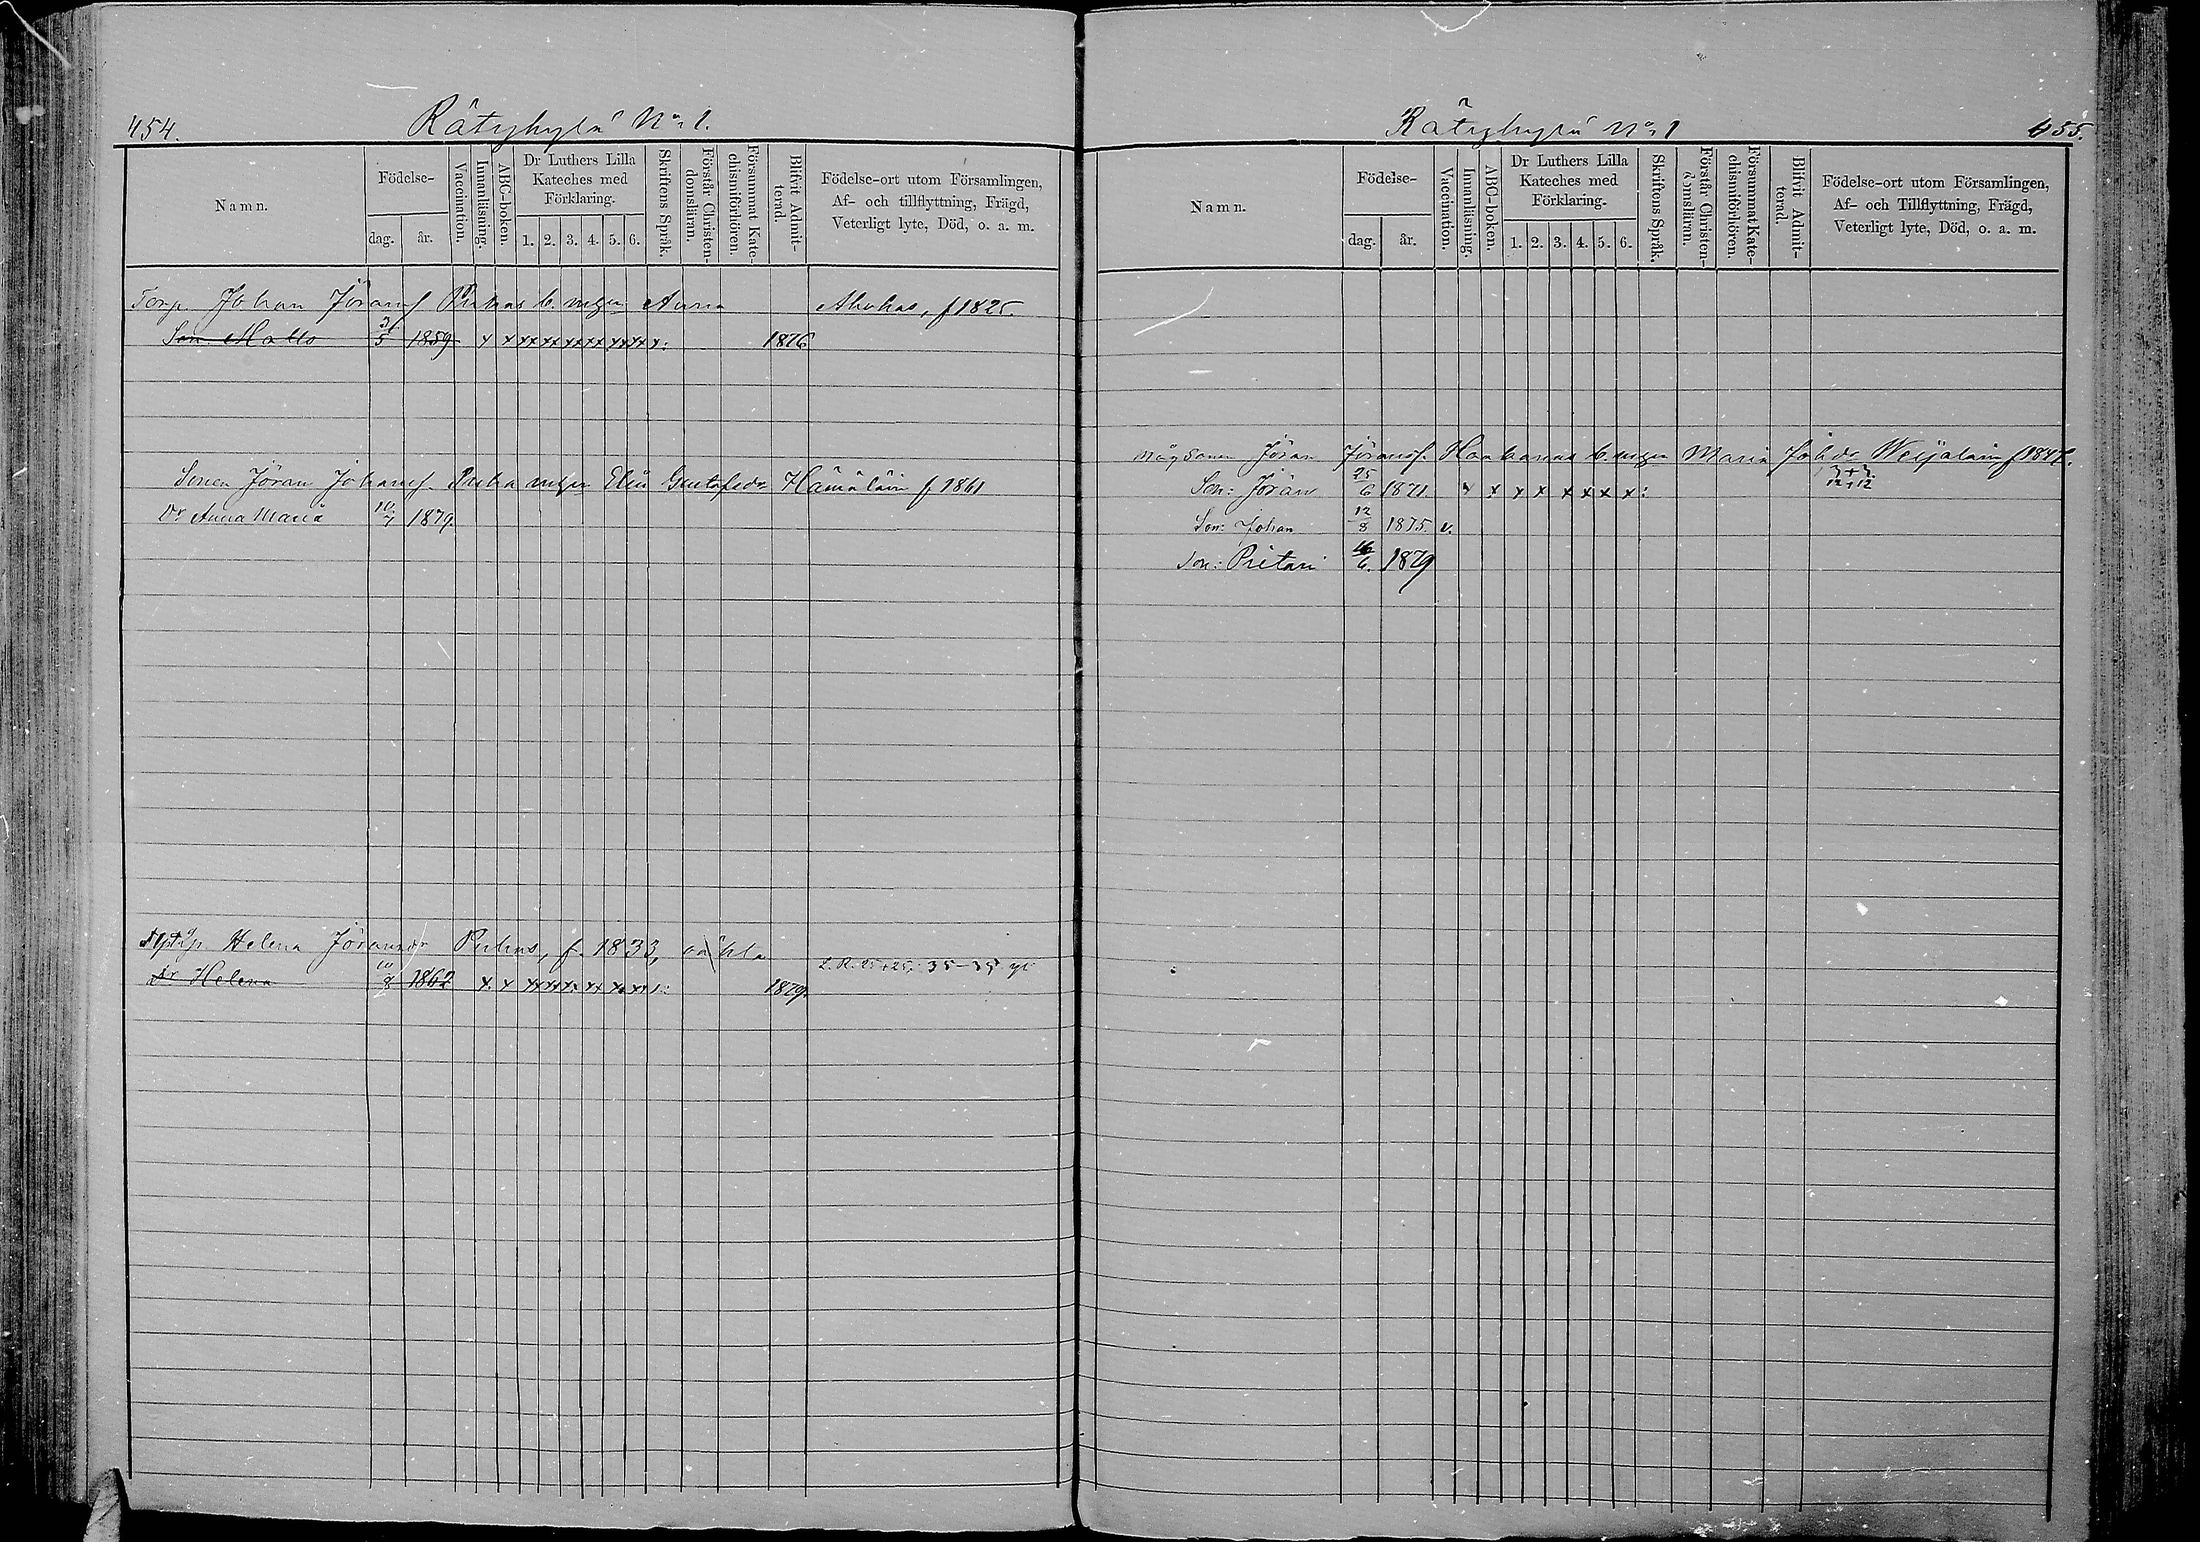 454.
Rätykylä No 1.
Namn.
Födelse-
dag.
år.
Vaccination.
Innanläsning.
ABC-boken.
Dr Luthers Lilla
Kateches med
Förklaring.
1. 2. 3. 4. 5. 6.
Skriftens Språk.
Förstår Christen-
domsläran.
Försummat Kate-
chismiförhören.
Blifvit Admit-
terad.
Födelse-ort utom Församlingen,
Af- och tillflyttning, Frägd,
Veterligt lyte, Död, o. a. m.
Torp. Johan Göransf Puhas b. Anna Ahokas, f 1825.
Son Matts 3/5 1859 x x xx xx xx xx xx xx x: 1876
Sonen Jöran Johansf. Elin Gustafsdr Hämäläin f. 1861
Dr Anna Maria 10/7 1879.
Helena Jöransdr Puhas, f. 1833,
Dr Helena 10/8 1862 x x xx xx xx xx xx 1879.
Rätykylä No 1
455.
Namn.
Födelse-
dag.
år.
Vaccination.
Innanläsning.
ABC-boken.
Dr Luthers Lilla
Kateches med
Förklaring.
1. 2. 3. 4. 5. 6.
Skriftens Språk.
Förstår Christen-
domsläran.
Försummat Kate-
chismiförhören.
Blifvit Admit-
terad.
Födelse-ort utom Församlingen,
Af- och Tillflyttning, Frägd,
Veterligt lyte, Död, o. a. m.
Mågsonen Jöran Jöransf. Maria
Son: Jöran 25/6 1871 x x x x x x x x:
Son: Johan 12/8 1875. v.
Son: Pietari 16/6. 1879